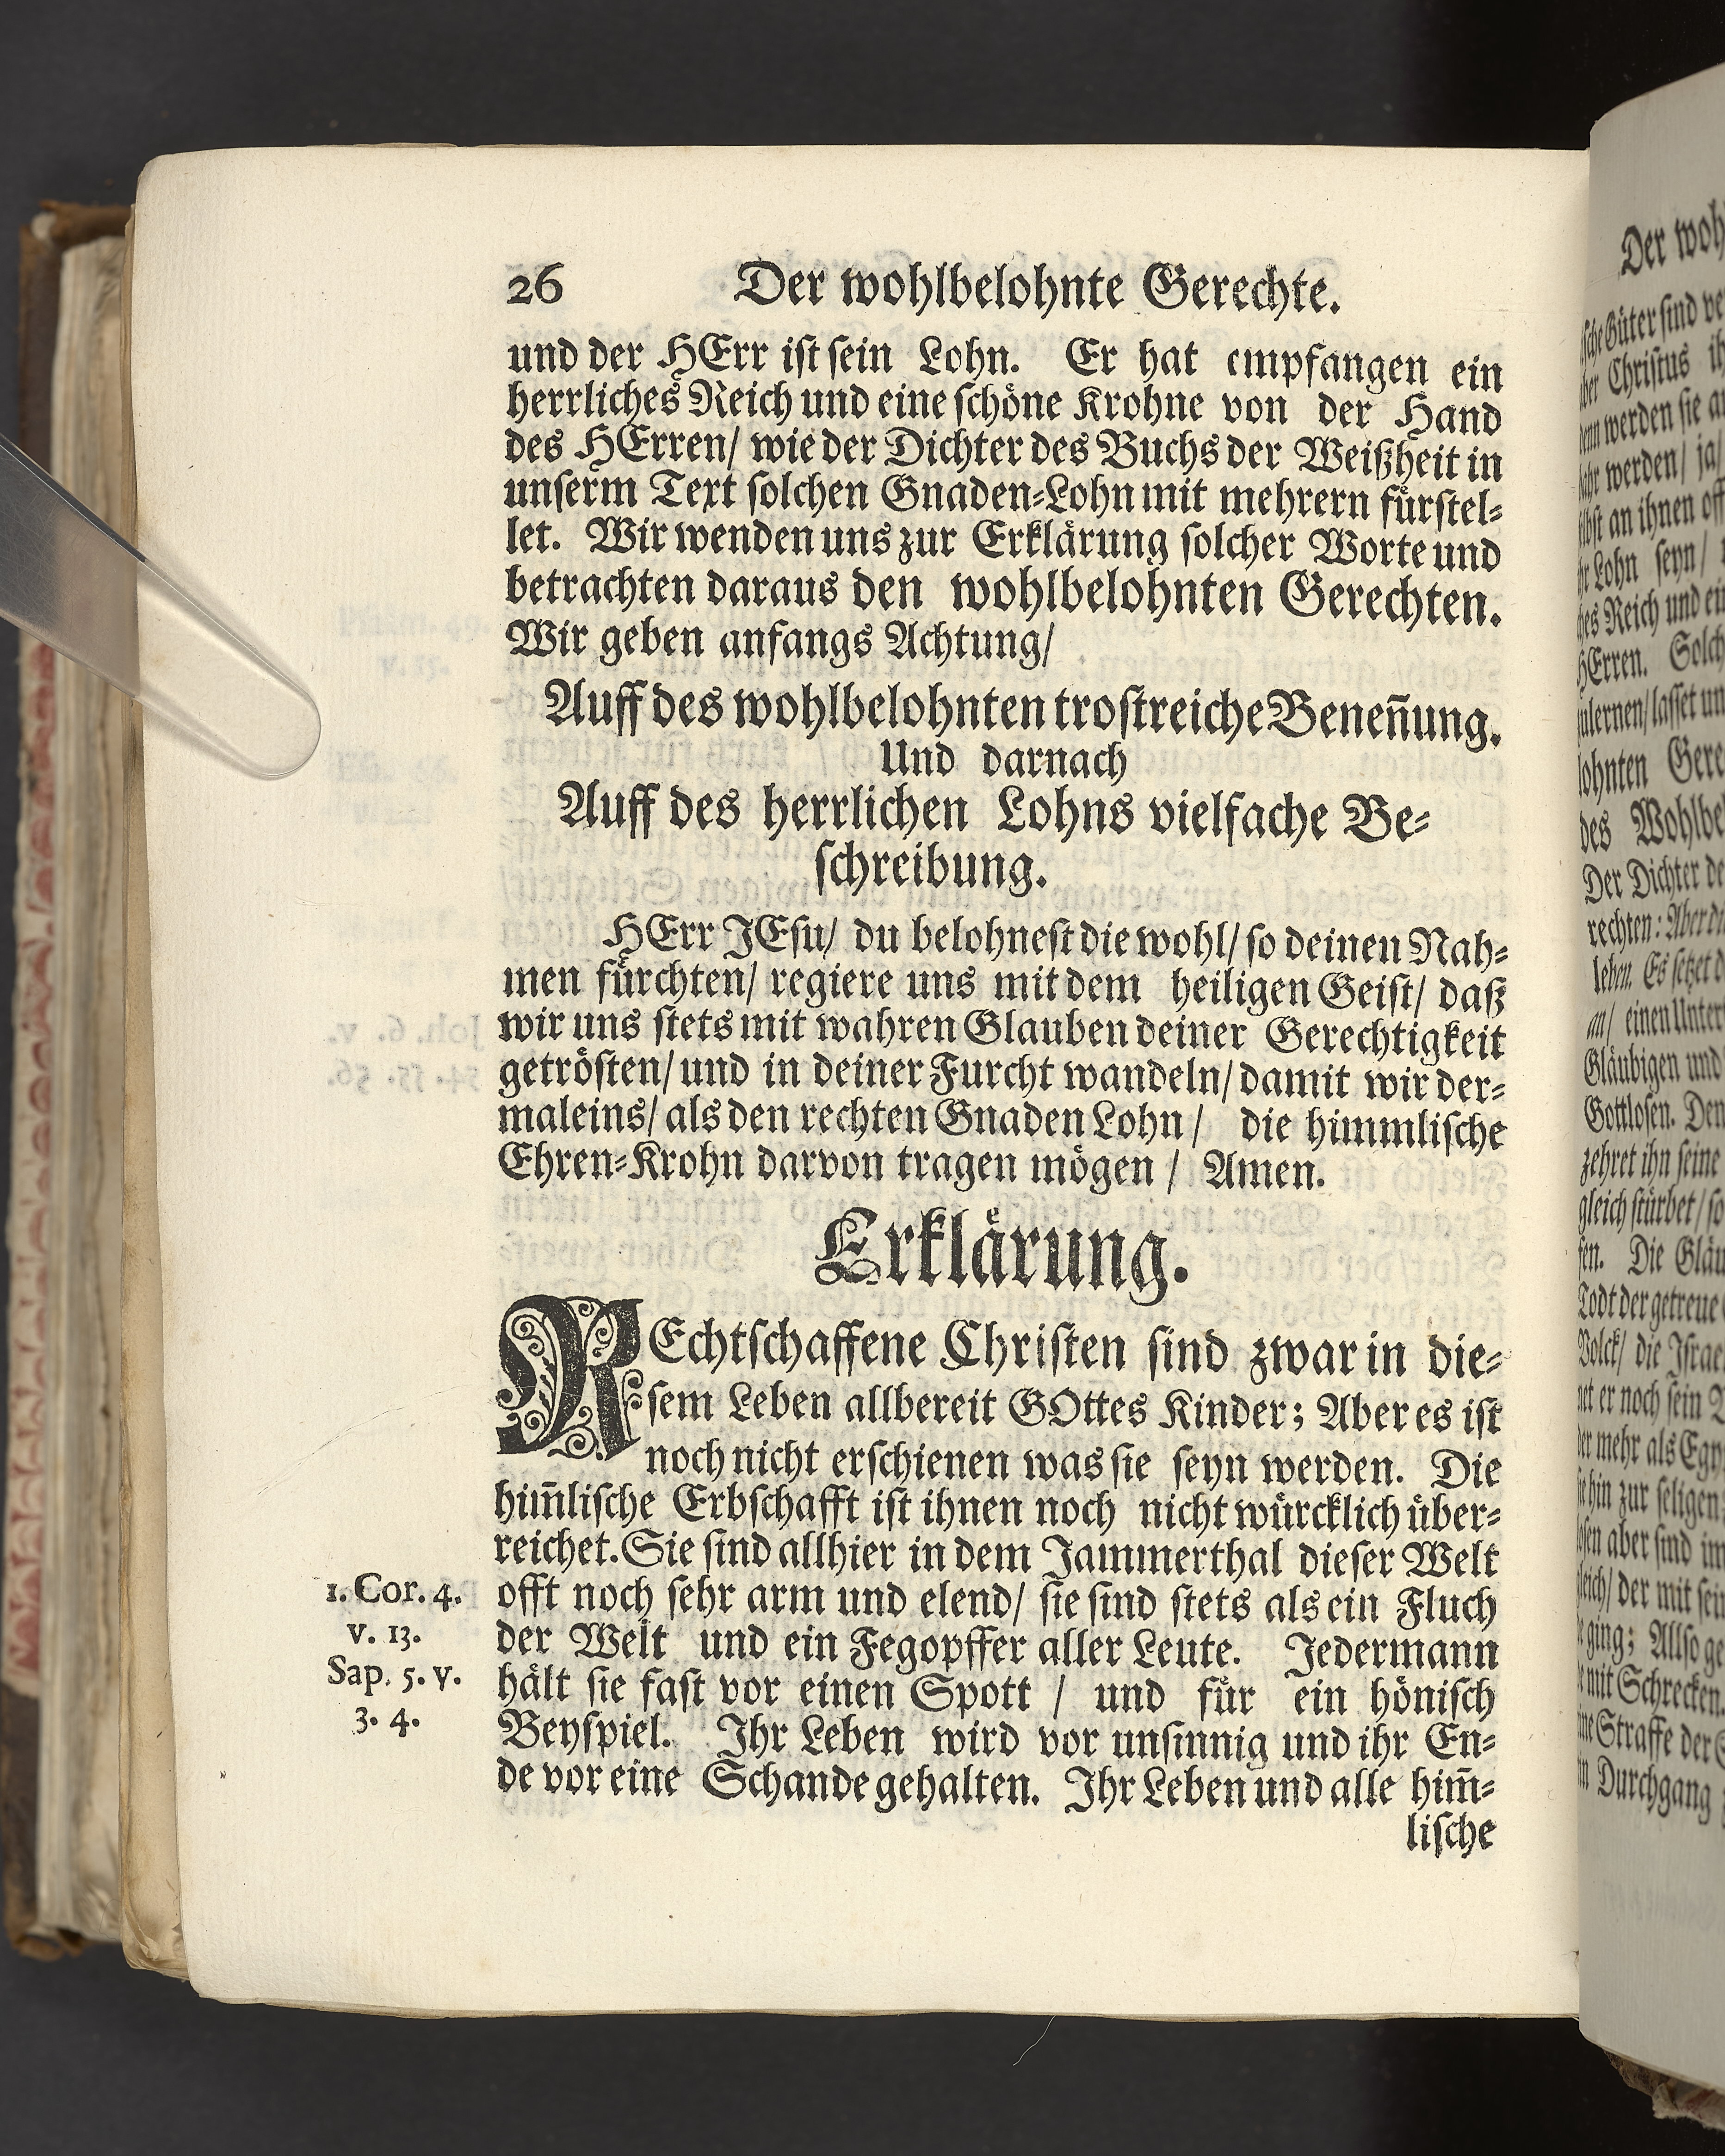 26 Der wohlbelohnte Gerechte.
und der HErr iſt ſein Lohn. Er hat empfangen ein
herrliches Reich und eine ſchöne Krohne von der Hand
des HErren/ wie der Dichter des Buchs der Weißheit in
unſerm Text ſolchen Gnaden-Lohn mit mehrern fürſtel-
let. Wir wenden uns zur Erklärung ſolcher Worte und
betrachten daraus den wohlbelohnten Gerechten.
Wir geben anfangs Achtung/
Auff des wohlbelohnten troſtreiche Beneñung.
Und darnach
Auff des herrlichen Lohns vielfache Be-
ſchreibung.
HErr JEſu/ du belohneſt die wohl/ ſo deinen Nah-
men fürchten/ regiere uns mit dem heiligen Geiſt/ daß
wir uns ſtets mit wahren Glauben deiner Gerechtigkeit
getröſten/ und in deiner Furcht wandeln/ damit wir der-
maleins/ als den rechten Gnaden Lohn/ die himmliſche
Ehren-Krohn darvon tragen mögen/ Amen.
Erklärung.
REchtſchaffene Chriſten ſind zwar in die-
ſem Leben allbereit GOttes Kinder; Aber es iſt
noch nicht erſchienen was ſie ſeyn werden. Die
him̃liſche Erbſchafft iſt ihnen noch nicht würcklich über-
reichet. Sie ſind allhier in dem Jammerthal dieſer Welt
offt noch ſehr arm und elend/ ſie ſind ſtets als ein Fluch
der Welt und ein Fegopffer aller Leute. Jedermann
hält ſie faſt vor einen Spott / und für ein höniſch
Beyſpiel. Ihr Leben wird vor unſinnig und ihr En-
de vor eine Schande gehalten. Ihr Leben und alle him̃-
liſche
1. Cor. 4.
v. 13.
Sap. 5. v.
3. 4.